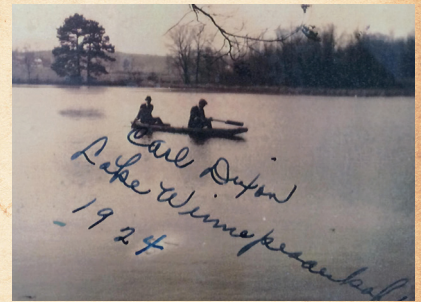 Carl Dixon
Lake Winnepesaukah
1924